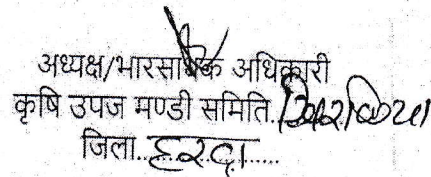 अध्यक्ष/भारसाधक अधिकारी
कृषि उपज मण्डी समिति..खिरकिया
जिला..हरदा......